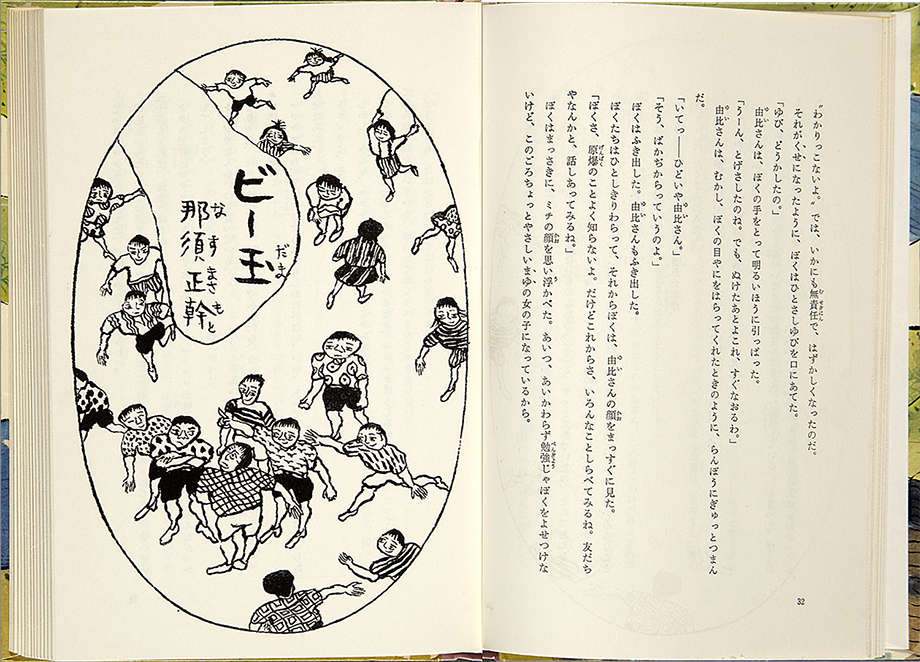 〝わかりっこないよ。〟では、いかにも無責任で、はずかしくなったのだ。
それがくせになったように、ぼくはひとさしゆびを口にあてた。
「ゆび、どうかしたの。」
由比さんは、ぼくの手をとって明るいほうに引っぱった。
「うーん、とげさしたのね。でも、ぬけたあとよこれ、すぐなおるわ。」
由比さんは、むかし、ぼくの目やにをはらってくれたときのように、らんぼうにぎゅっとつまん
だ。
「いてっ――ひどいや由比さん。」
「そう、ばかぢからっていうのよ。」
ぼくはふき出した。由比さんもふき出した。
ぼくたちはひとしきりわらって、それからぼくは、由比さんの顔をまっすぐに見た。
「ぼくさ、原爆のことよく知らないよ。だけどこれからさ、いろんなことしらべてみるね。友だち
やなんかと、話しあってみるね。」
ぼくはまっさきに、ミチの顔を思い浮かべた。あいつ、あいかわらず勉強じゃぼくをよせつけな
いけど、このごろちょっとやさしいまゆの女の子になっているから。
32
ビー玉
那須正幹